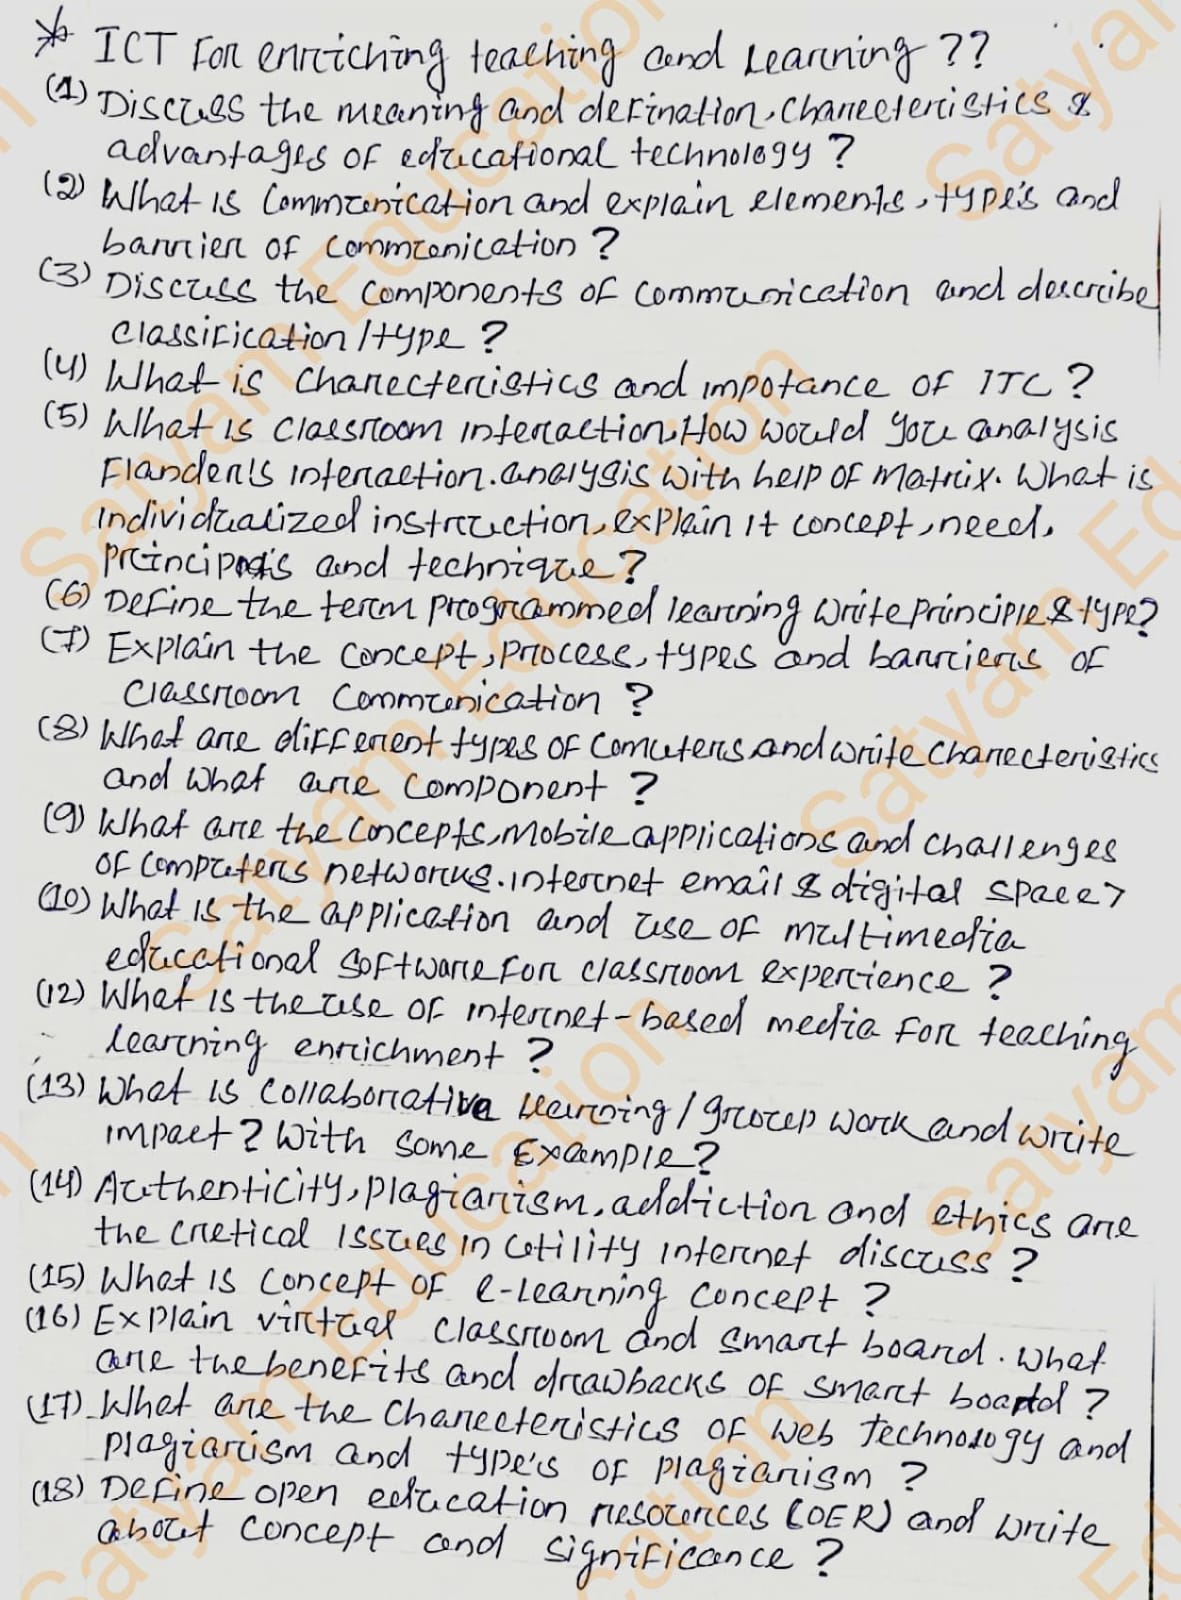 * ICT For enriching teaching and Learning ??
(1) Discuss the meaning and defination, charecteristics &
advantages of educational technology ?
(2) What is Communication and explain elements, type's and
barrier of communication ?
(3) Discuss the components of communication and describe
classification/type ?
(4) What is charecteristics and impotance of ITC ?
(5) What is classroom interaction, How would you analysis
Flander's interaction.analysis with help of matrix. What is
individualized instruction, explain it concept, need,
principals and technique ?
(6) Define the term programmed learning write principle & type?
(7) Explain the concept, process, types and barriers of
classroom communication ?
(8) What are different types of comuters and write charecteristics
and what are component ?
(9) What are the concepts, mobile applications and challenges
of computers networks. internet email & digital space ?
(10) What is the application and use of multimedia
educational software for classroom experience ?
(12) What is the use of internet-based media for teaching
learning enrichment ?
(13) What is collaborative learning / group work and write
impact ? with some Example ?
(14) Authenticity, plagiarism, addiction and ethics are
the cretical issues in utility internet discuss ?
(15) What is concept of e-learning concept ?
(16) Explain virtual classroom and smart board. what
are the benefits and drawbacks of smart board ?
(17) What are the charecteristics of web technology and
plagiarism and type's of plagiarism ?
(18) Define open education resources (OER) and write
about concept and significance ?
Satyam Education